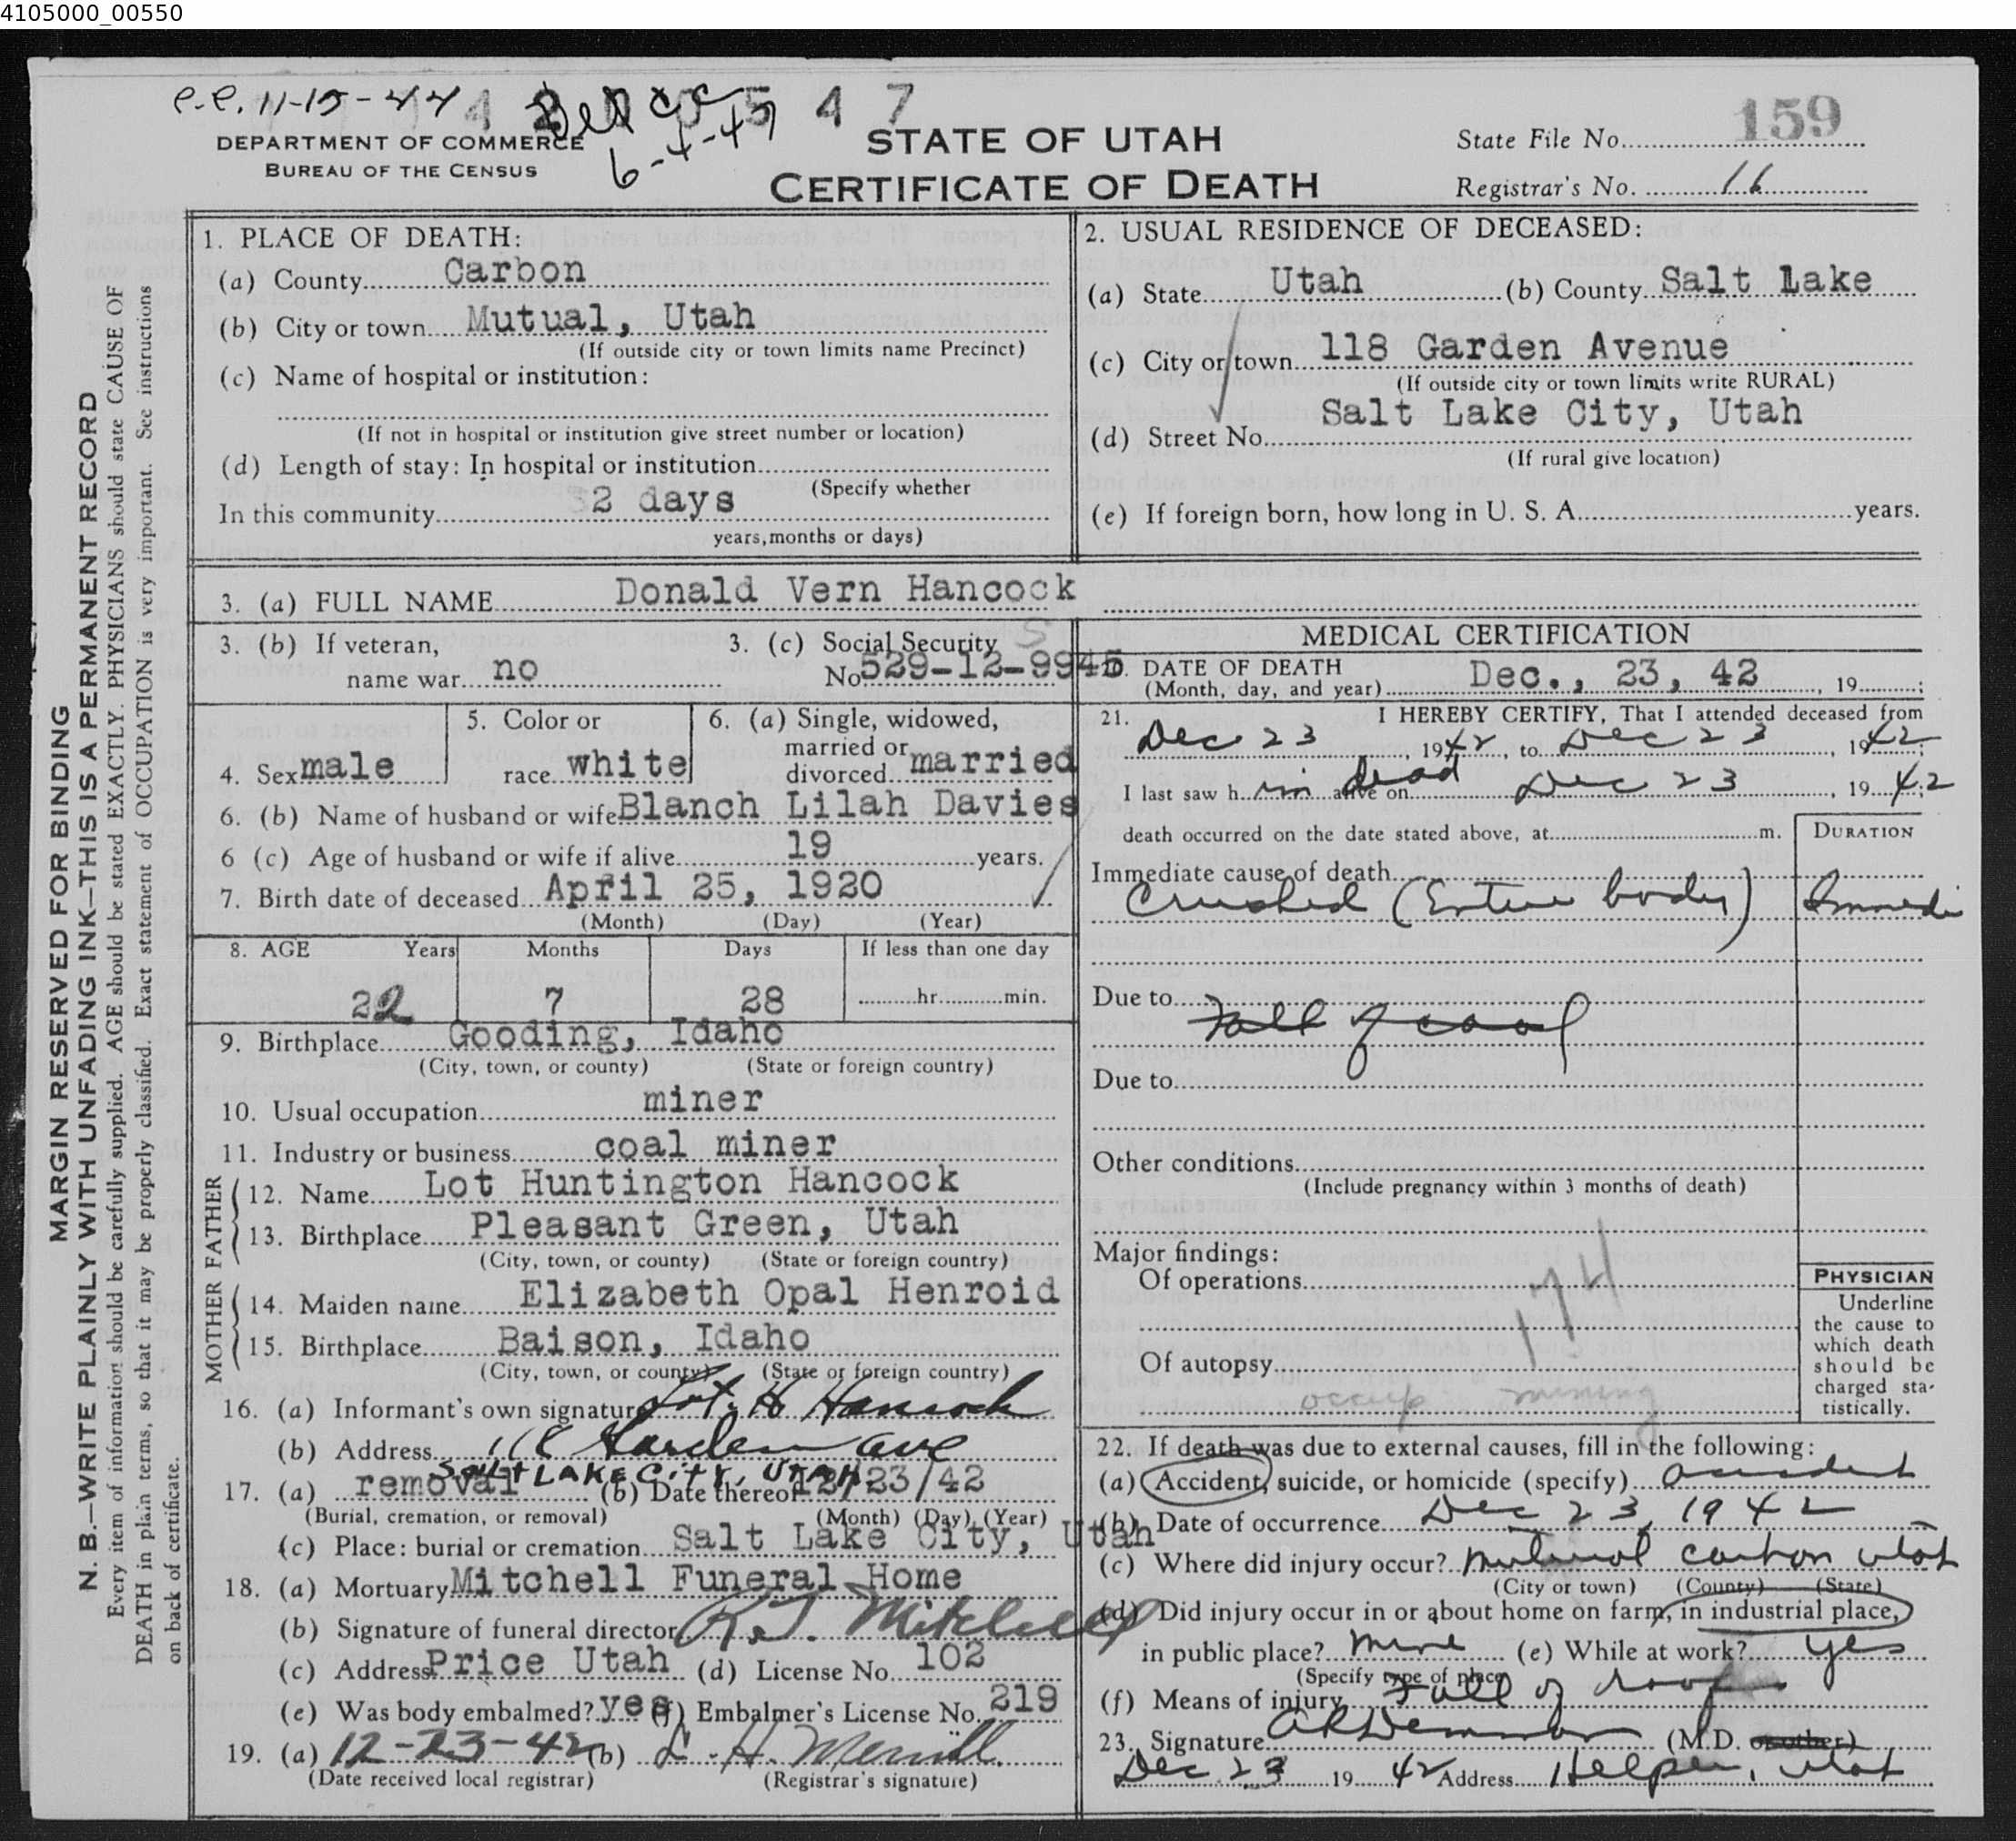 4105000_00550
c.c. 11-15-44 Del cc 5 4 7
6-4-47
DEPARTMENT OF COMMERCE
BUREAU OF THE CENSUS
STATE OF UTAH
CERTIFICATE OF DEATH
State File No. 159
Registrar's No. 16
MARGIN RESERVED FOR BINDING
N. B.—WRITE PLAINLY WITH UNFADING INK—THIS IS A PERMANENT RECORD
Every item of information should be carefully supplied. AGE should be stated EXACTLY. PHYSICIANS should state CAUSE OF
DEATH in plain terms, so that it may be properly classified. Exact statement of OCCUPATION is very important. See instructions
on back of certificate.
1. PLACE OF DEATH:
(a) County Carbon
(b) City or town Mutual, Utah
(If outside city or town limits name Precinct)
(c) Name of hospital or institution:
(If not in hospital or institution give street number or location)
(d) Length of stay: In hospital or institution
(Specify whether
In this community 2 days
years, months or days)
2. USUAL RESIDENCE OF DECEASED:
(a) State Utah (b) County Salt Lake
(c) City or town 118 Garden Avenue
(If outside city or town limits write RURAL)
Salt Lake City, Utah
(d) Street No.
(If rural give location)
(e) If foreign born, how long in U. S. A. years.
3. (a) FULL NAME Donald Vern Hancock
3. (b) If veteran, name war no
3. (c) Social Security No 529-12-9945
4. Sex male
5. Color or race white
6. (a) Single, widowed, married or divorced married
6. (b) Name of husband or wife Blanch Lilah Davies
6 (c) Age of husband or wife if alive 19 years.
7. Birth date of deceased April 25, 1920
(Month) (Day) (Year)
8. AGE Years Months Days If less than one day
22 7 28 hr. min.
9. Birthplace Gooding, Idaho
(City, town, or county) (State or foreign country)
10. Usual occupation miner
11. Industry or business coal miner
FATHER
12. Name Lot Huntington Hancock
13. Birthplace Pleasant Green, Utah
(City, town, or county) (State or foreign country)
MOTHER
14. Maiden name Elizabeth Opal Henroid
15. Birthplace Baison, Idaho
(City, town, or county) (State or foreign country)
16. (a) Informant's own signature Lot. H Hancock
(b) Address 118 Garden ave
SALT LAKE CITY, UTAH
17. (a) removal (b) Date thereof 12/23/42
(Burial, cremation, or removal) (Month) (Day) (Year)
(c) Place: burial or cremation Salt Lake City, Utah
18. (a) Mortuary Mitchell Funeral Home
(b) Signature of funeral director R.J. Mitchell
(c) Address Price Utah (d) License No. 102
(e) Was body embalmed? yes (f) Embalmer's License No. 219
19. (a) 12-23-42 (b) L. H. Merrill
(Date received local registrar) (Registrar's signature)
MEDICAL CERTIFICATION
20. DATE OF DEATH
(Month, day, and year) Dec., 23, 42, 19 ;
21. I HEREBY CERTIFY, That I attended deceased from
Dec 23, 1942, to Dec 23, 1942;
I last saw h im alive on dead Dec 23, 1942;
death occurred on the date stated above, at m.
DURATION
Immediate cause of death
Crushed (Entire body) Immedi
Due to
Fall of coal
Due to
Other conditions
(Include pregnancy within 3 months of death)
Major findings:
Of operations
174
Of autopsy
occup mining
PHYSICIAN
Underline
the cause to
which death
should be
charged sta-
tistically.
22. If death was due to external causes, fill in the following:
(a) Accident, suicide, or homicide (specify) accident
(b) Date of occurrence Dec 23, 1942
(c) Where did injury occur? Mutual carbon utah
(City or town) (County) (State)
(d) Did injury occur in or about home on farm, in industrial place,
in public place? mine (e) While at work? yes
(Specify type of place)
(f) Means of injury Fall of roof
23. Signature (M.D. or other)
Dec 23 19 42 Address Helper, utah